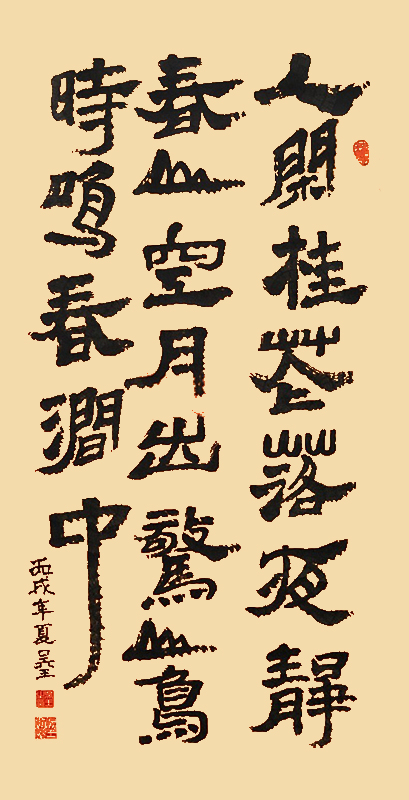 人閑桂花落夜靜
春山空月出驚山鳥
時鳴春澗中
丙戌年夏吳